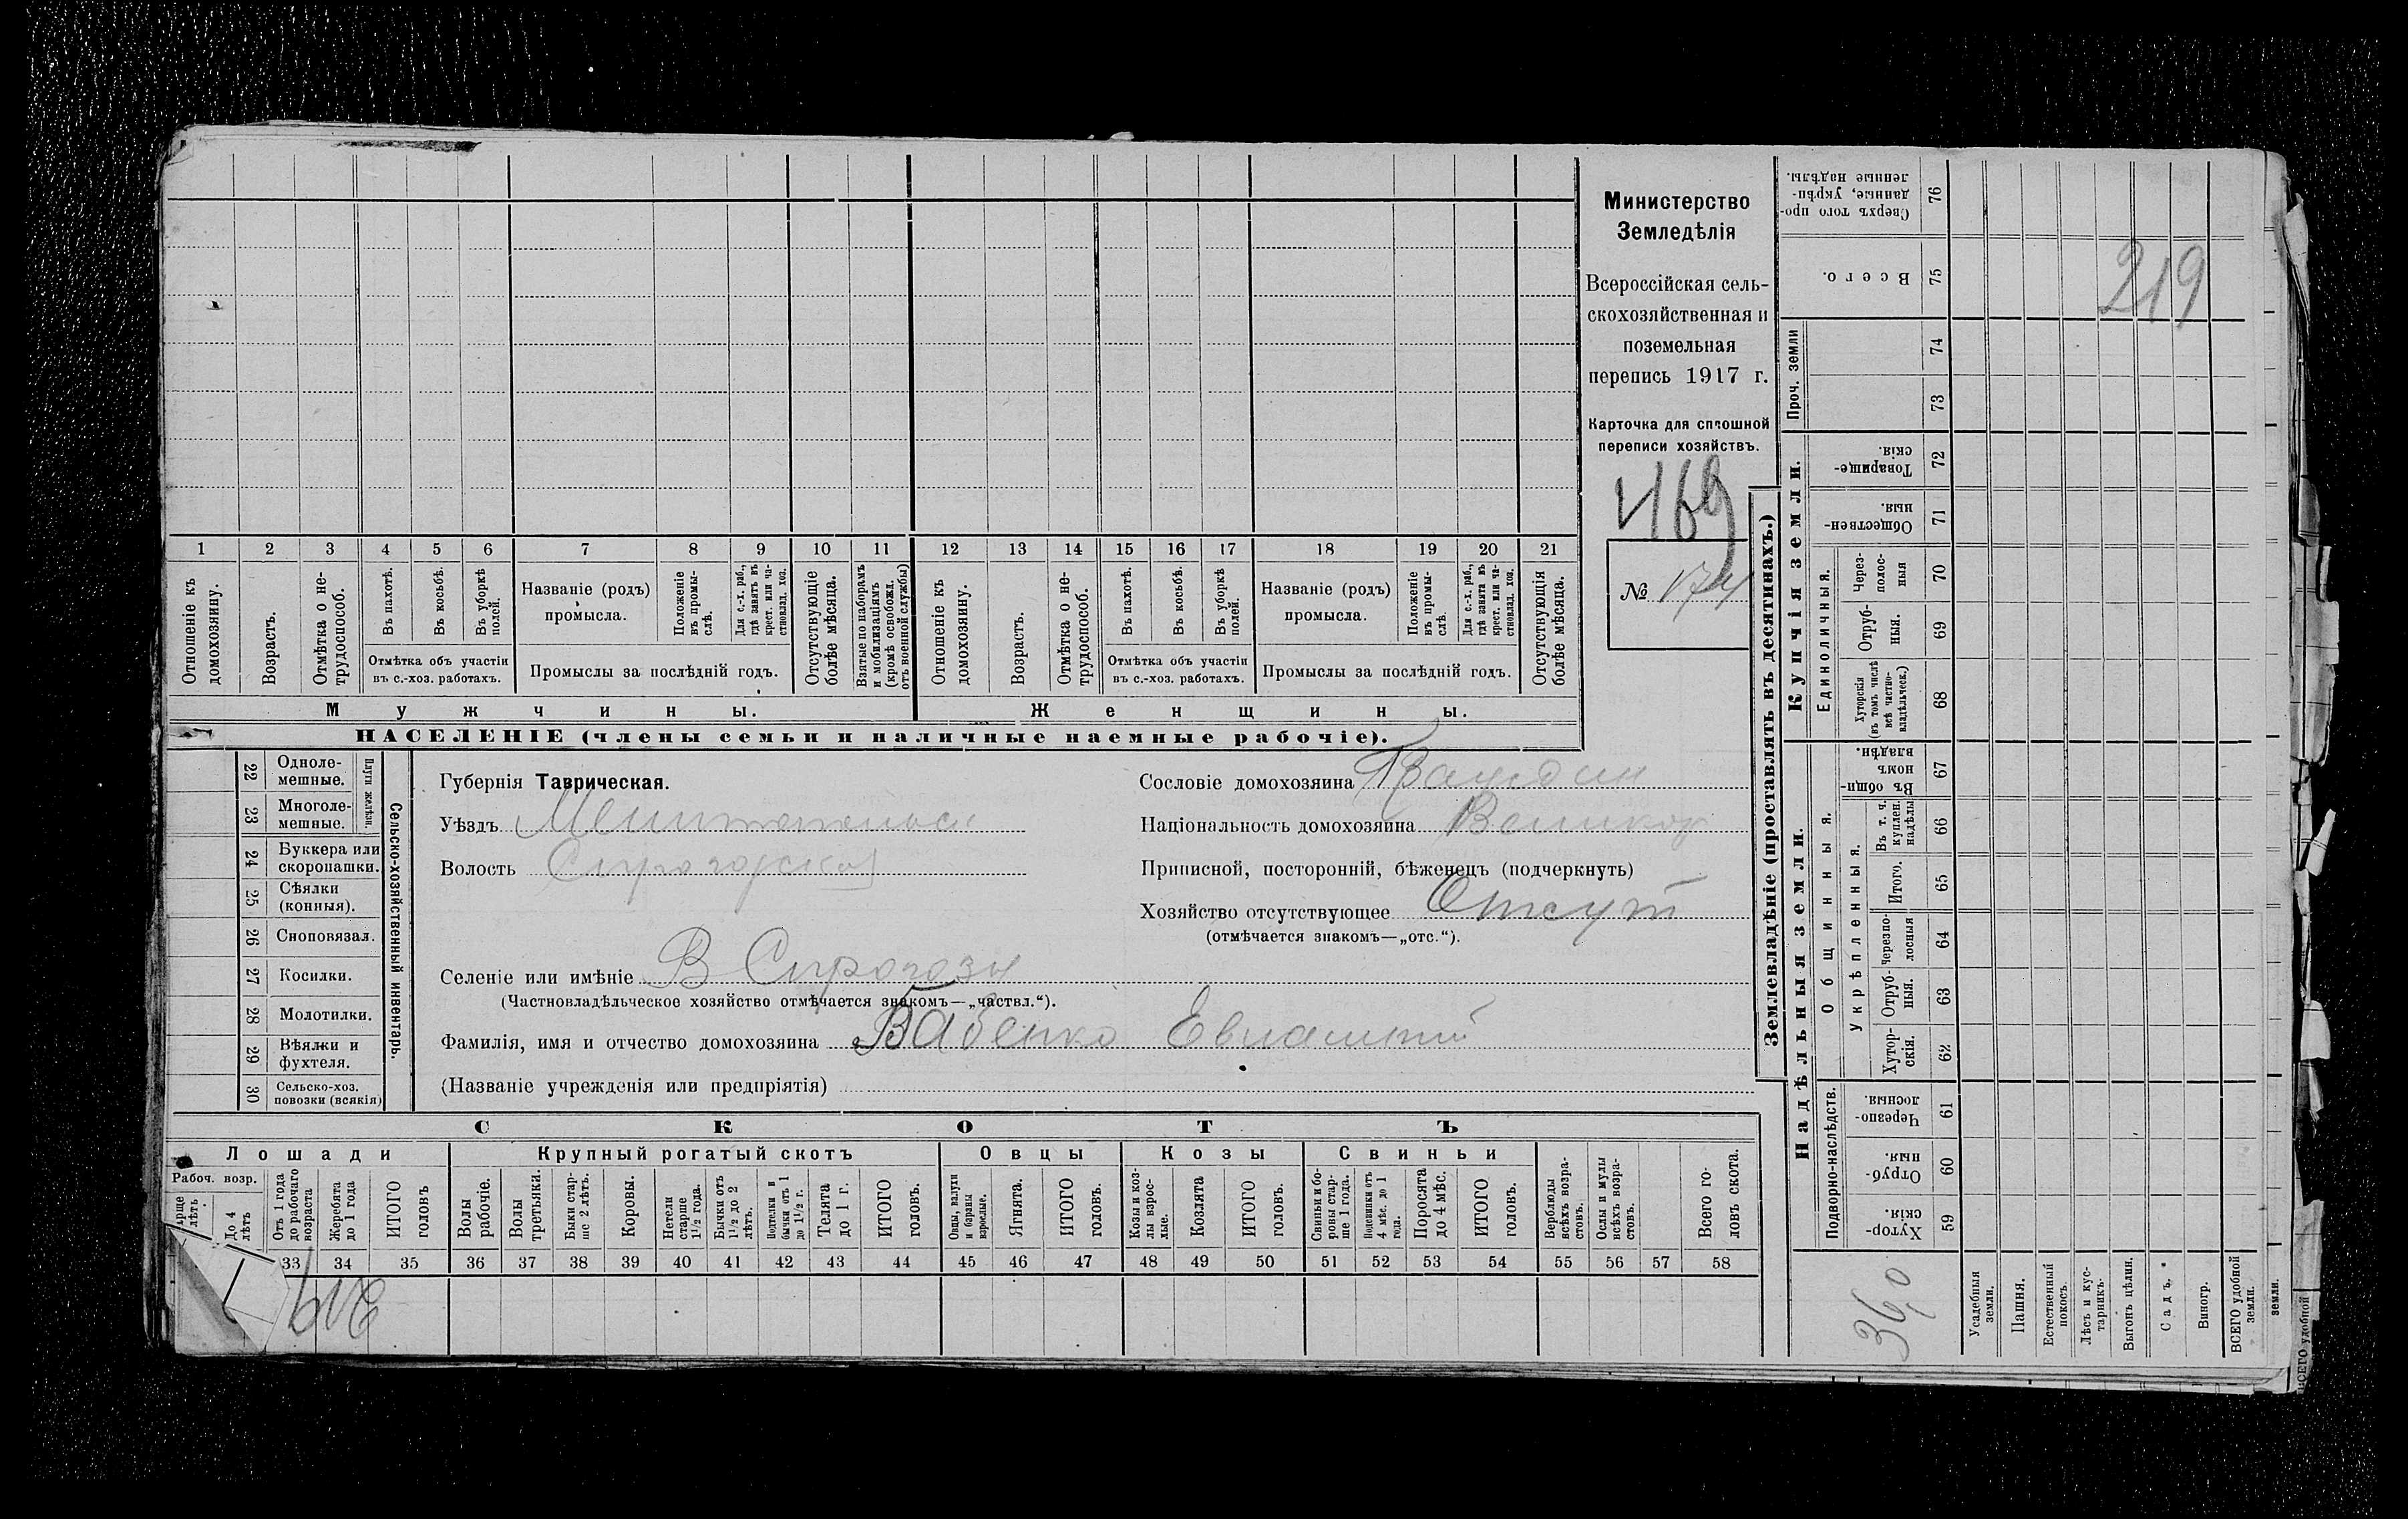 Министерство
Земледѣлія
Всероссійская сель-
скохозяйственная и
поземельная
перепись 1917 г.
Карточка для сплошной
переписи хозяйствъ.
169
№ 174
219
1 2 3 4 5 6 7 8 9 10 11 12 13 14 15 16 17 18 19 20 21
Отношеніе къ домохозяину.
Возрастъ.
Отмѣтка о не-трудоспособ.
Въ пахотѣ.
Въ косьбѣ.
Въ уборкѣ полей.
Отмѣтка объ участіи
въ с.-хоз. работахъ.
Названіе (родъ)
промысла.
Положеніе въ промы-слѣ.
Для с.-х. раб., гдѣ занятъ въ крест. или ча-стновлад. хоз.
Промыслы за послѣдній годъ.
Отсутствующіе болѣе мѣсяца.
Взятые по наборамъ и мобилизаціямъ (кромѣ освобожд. отъ военной службы)
Отношеніе къ домохозяину.
Возрастъ.
Отмѣтка о не-трудоспособ.
Въ пахотѣ.
Въ косьбѣ.
Въ уборкѣ полей.
Отмѣтка объ участіи
въ с.-хоз. работахъ.
Названіе (родъ)
промысла.
Положеніе въ промы-слѣ.
Для с.-х. раб., гдѣ занятъ въ крест. или ча-стновлад. хоз.
Промыслы за послѣдній годъ.
Отсутствующія болѣе мѣсяца.
Мужчины.
Женщины.
НАСЕЛЕНІЕ (члены семьи и наличные наемные рабочіе).
22 Одноле-мешные.
23 Многоле-мешные.
Плуги желѣзн.
24 Буккера или скоропашки.
25 Сѣялки (конныя).
26 Сноповязал.
27 Косилки.
28 Молотилки.
29 Вѣялки и фухтеля.
30 Сельско-хоз. повозки (всякія)
Сельско-хозяйственный инвентарь.
Губернія Таврическая.
Уѣздъ Мелитопольск
Волость Сирогозская
Селеніе или имѣніе В Сирогозы
(Частновладѣльческое хозяйство отмѣчается знакомъ—„частвл.“).
Фамилія, имя и отчество домохозяина Бабенко Евлампий
(Названіе учрежденія или предпріятія)
Сословіе домохозяина Граждин
Національность домохозяина Великор
Приписной, посторонній, бѣженецъ (подчеркнуть)
Хозяйство отсутствующее Отсут
(отмѣчается знакомъ—„отс.“).
СКОТЪ
Лошади
Крупный рогатый скотъ
Овцы
Козы
Свиньи
Рабоч. возр.
До 4 лѣтъ
Отъ 1 года до рабочаго возраста
Жеребята до 1 года
ИТОГО головъ
Волы рабочіе.
Волы третьяки.
Быки стар-ше 2 лѣтъ.
Коровы.
Нетели старше 1½ года.
Бычки отъ 1½ до 2 лѣтъ.
Подтелки и бычки отъ 1 до 1½ г.
Телята до 1 г.
ИТОГО головъ.
Овцы, валухи и бараны взрослые.
Ягнята.
ИТОГО головъ.
Козы и коз-лы взрос-лые.
Козлята
ИТОГО головъ.
Свиньи и бо-ровы стар-ше 1 года.
Подсвинки отъ 4 мѣс. до 1 года.
Поросята до 4 мѣс.
ИТОГО головъ.
Верблюды всѣхъ возра-стовъ.
Ослы и мулы всѣхъ возра-стовъ.
Всего го-ловъ скота.
33 34 35 36 37 38 39 40 41 42 43 44 45 46 47 48 49 50 51 52 53 54 55 56 57 58
Землевладѣніе (проставлять въ десятинахъ.)
Купчія земли.
Надѣльныя земли.
Проч. земли
Единоличныя.
Общинныя.
Укрѣпленныя.
Подворно-наслѣдств.
Сверхъ того про-данные, укрѣп-ленные надѣлы. 76
Всего. 75
74
73
Товарище-скія. 72
Обществен-ныя. 71
Через-полос-ныя 70
Отруб-ныя. 69
Хуторскія (въ томъ числѣ всѣ частно-владѣльческ.) 68
Въ общи-номъ владѣн. 67
Въ т. ч. куплен. надѣлы 66
Итого. 65
Черезпо-лосныя 64
Отруб-ныя. 63
Хутор-скія. 62
Черезпо-лосныя. 61
Отруб-ныя. 60
Хутор-скія. 59
Усадебныя земли.
Пашня.
Естественный покосъ.
Лѣсъ и кус-тарникъ.
Выгонъ цѣлин.
Садъ.
Виногр.
ВСЕГО удобной земли.
земли.
ВСЕГО удобной